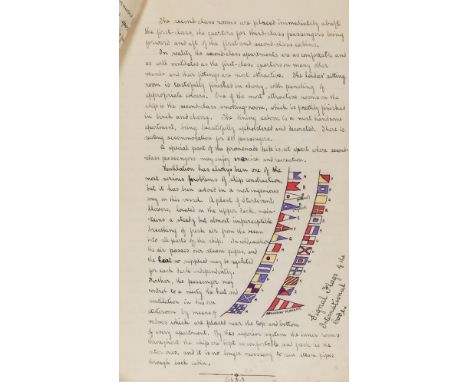 The second-class rooms are placed immediately abaft
the first-class, the quarters for third-class passengers being
forward and aft of the first and second-class cabins.
In reality the second-class apartments are as comfortable and
as well ventilated as the first-class quarters on many other
vessels and their fittings are most attractive. The ladies' sitting
room is tastefully finished in ebony, with panelling of
appropriate colours. One of the most attractive rooms on the
ship is the second-class smoking-room, which is prettily finished
in birch and ebony. The dining saloon is a most handsome
apartment, being beautifully upholstered and decorated. There is
seating accommodation for 251 passengers.
A special part of the promenade deck is set apart where second-
class passengers may enjoy exercise and recreation.
Ventilation has always been one of the
most serious problems of ship construction,
but it has been solved in a most ingenious
way on this vessel. A plant of Sturtevant
blowers, located in the upper deck, main-
tains a steady but almost imperceptible
breathing of fresh air from the ocean
into all parts of the ship. In
the air passes over steam pipes, and
the heat so supplied may be regulated
for each deck independently.
Further, the passenger may
to a nicety the heat and
ventilation in his own
stateroom by means of
which are placed near the top and bottom
of every apartment. By this superior system the inner rooms
throughout the ship are kept as comfortable and fresh as the
outer ones, and it is no longer necessary to run steam pipes
through each cabin.
Signal Flags of the
International
Code.